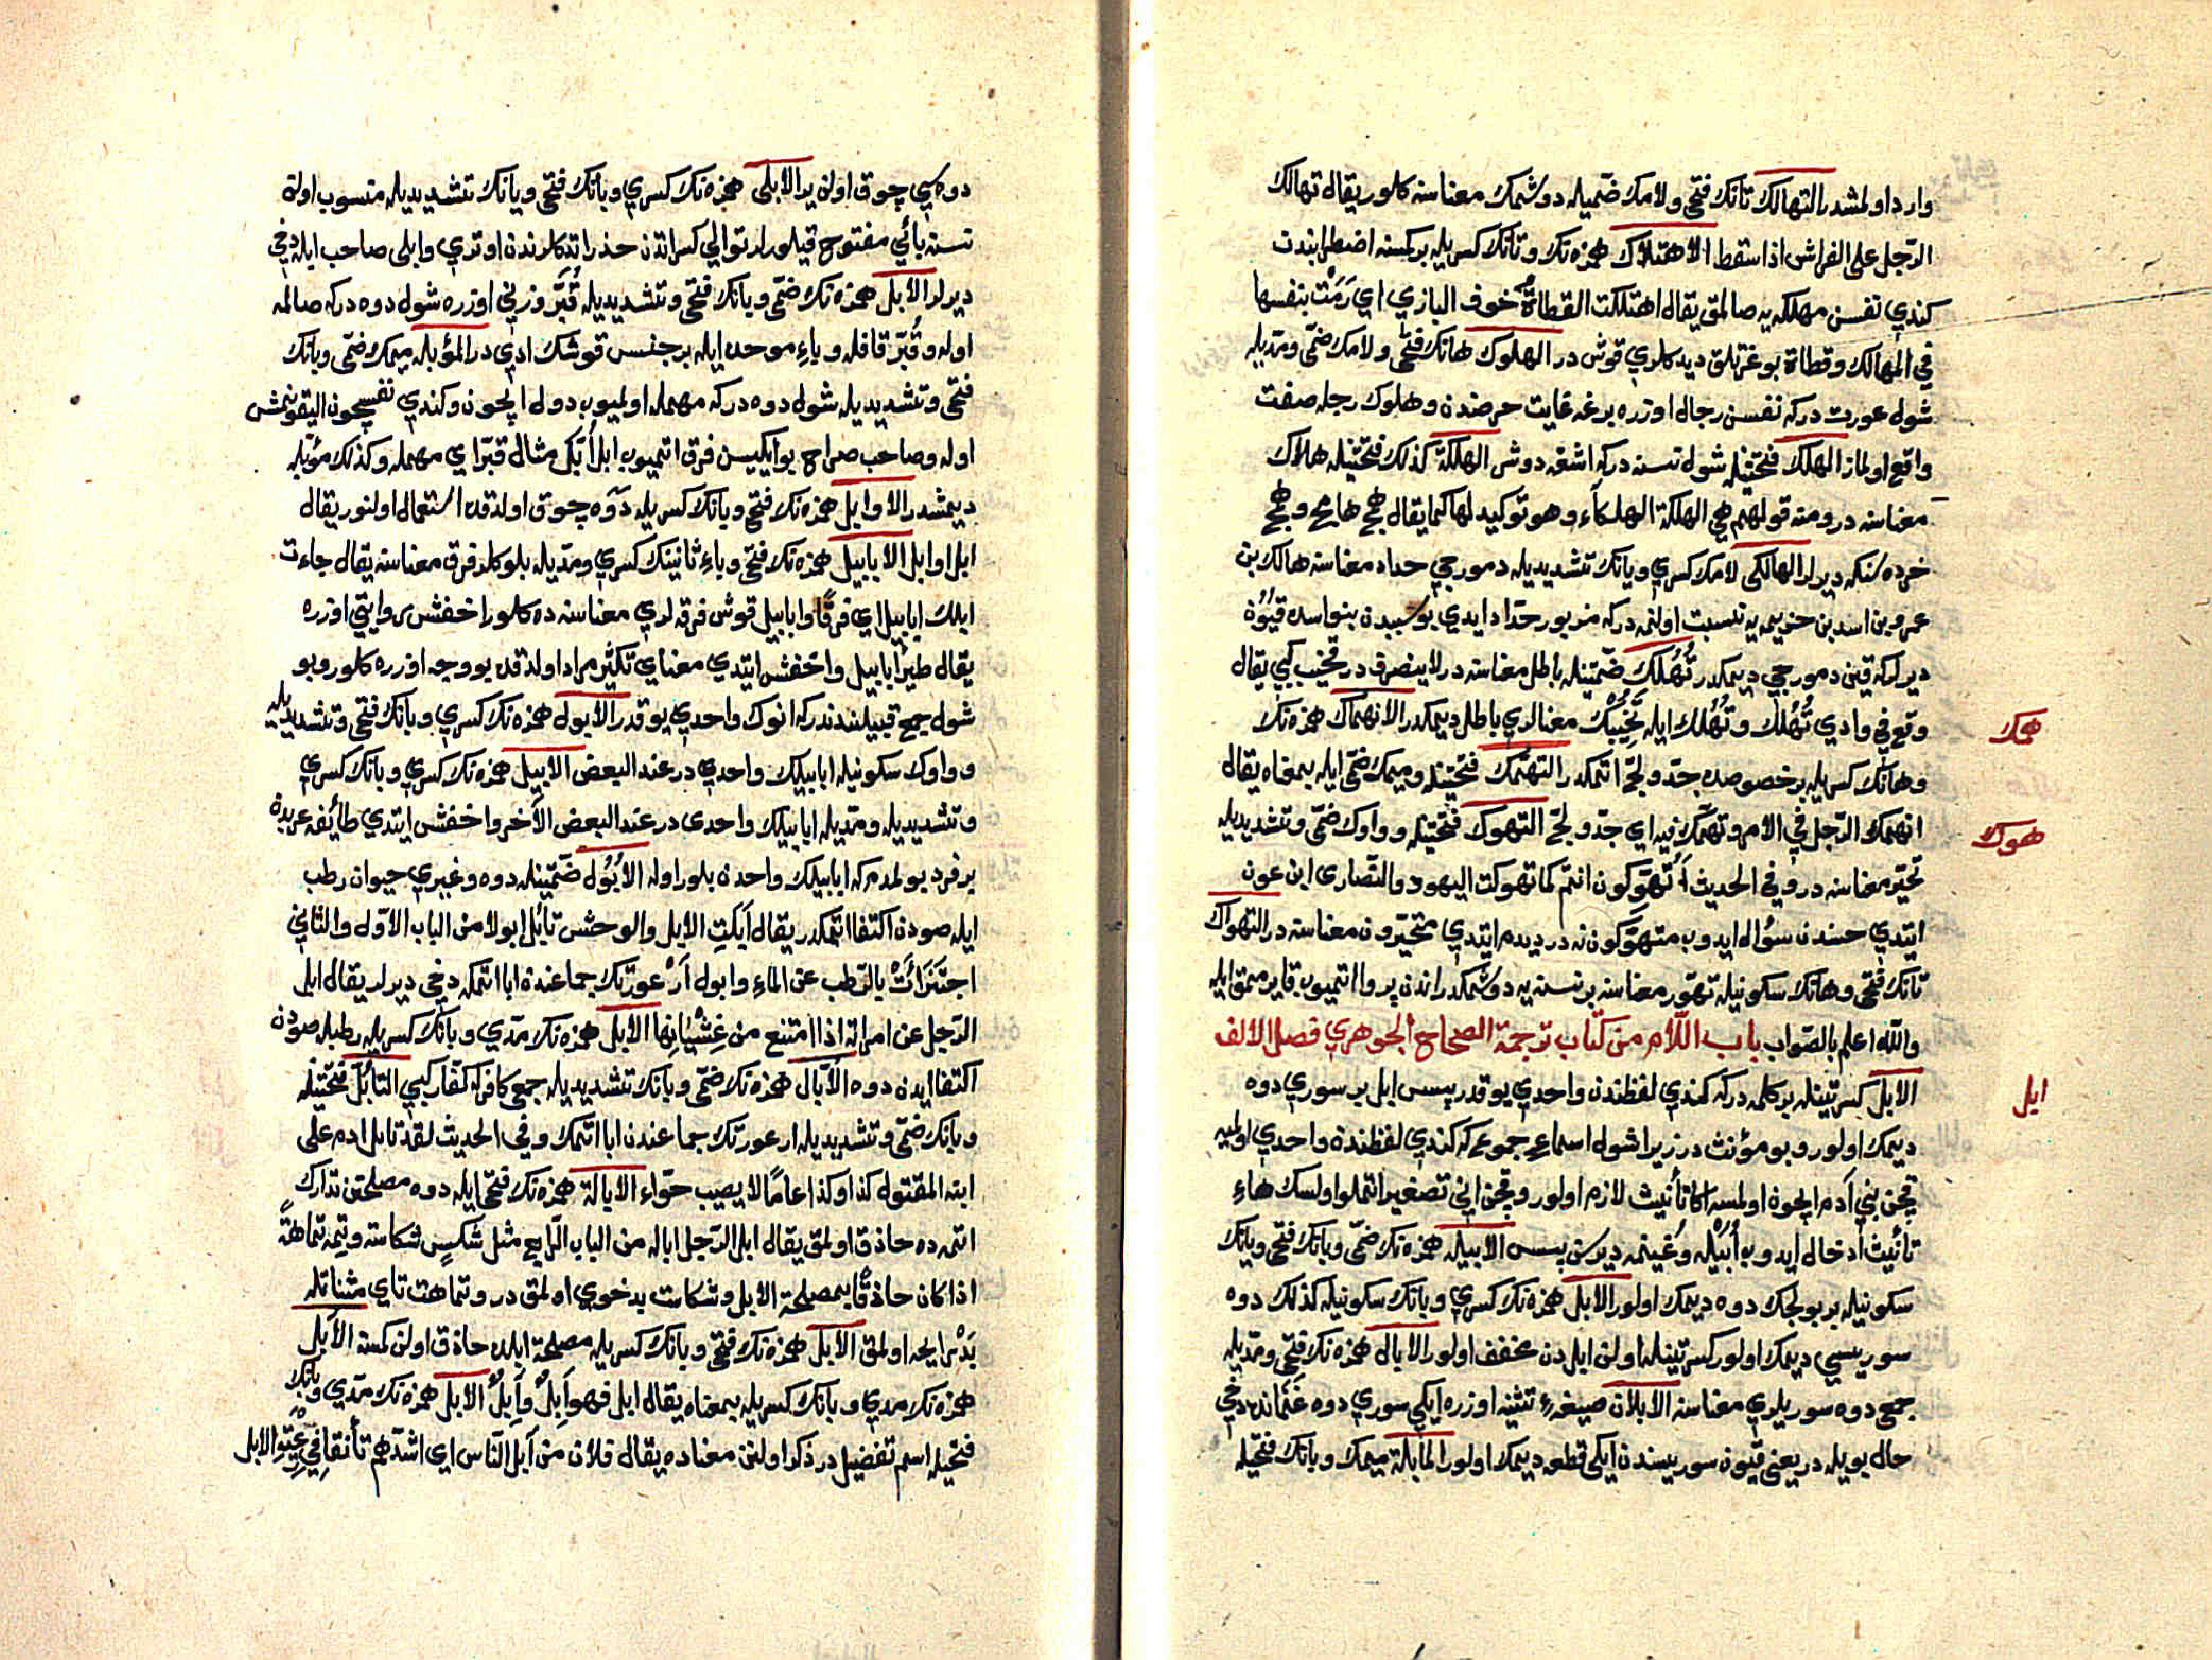 وارد اولمشدر التهالك تانك فتحى ولامك ضميله دوشمك معناسنه كلور يقال تهالك
الرّجل على الفراش اذا سقط الاهتلاك همزه نك وتانك كسريله بر كمسنه اضطرابندن
كندي نفسن مهلكه يه صالمق يقال اهتلكت القطاة خوف البازي اي رَمَتْ بنفسها
في المهالك وقطاة بوغرتلق ديدكلري قوش در الهلوك هانك فتحى ولامك ضمّى ومدّيله
شول عورت دركه نفسن رجال اوزره برغه غايت حرصندن وهلوك رجله صفت
واقع اولماز الهلك فتحتينله شول نسنه دركه اشغه دوشر الهلكة كذلك فتحتينله هلاك
معناسنه در ومنه قولهم هي الهلكة الهلكاء وهو توكيد لها كما يقال همج هامج وهمج
خرده سنكه ديرلر الهالكى لامك كسري ويانك تشديديله دمورجي حداد معناسنه هالك بن
عمرو بن اسد بن خزيمه يه نسبت اولنمه دركه مزبور حدّاد ايدي بو سببدن بنواسده قيُون
ديرلركه قين دمورجي ديمكدر تُهُلك ضمّتينله باطل معناسنه در لاينصرف در تخيب كبي يقال
وقع في وادي تُهُلك وتُهُلك ايله تُخُيّبك معنالري باطل ديمكدر الانهماك همزه نك
وهانك كسريله بر خصوصده جدّ ولجّ اتمكدر التهمّك فتحتينله وميمك ضمّى ايله بمعناه يقال
انهمك الرّجل في الامر وتهمّك فيه اي جدّ ولجّ التهوك فتحتينله وواوك ضمّى وتشديديله
تحيّر معناسنه در وفي الحديث أَتُهَوَّكون انتم كما تهوكت اليهود والنّصارى ابن عون
ايتدي حسندن سؤال ايدوب متهوّكون نه در ديدم ايتدي متحيّرون معناسنه در التهواك
تانك فتحى وهانك سكونيله تهوّر معناسنه بر نسنه يه دوشمكدر اندن پروا اتميوب قايرمق ايله
واللّه اعلم بالصّواب باب اللّام من كتاب ترجمة الصحاح الجوهري فصل الالف
الابل كسرتينله بر كلمه دركه كندي لفظندن واحدي يوقدر پس ابل بر سوري دوه
ديمك اولور وبو مؤنث در زيرا شول اسماء جموع كه كندي لفظندن واحدي اولميه
قچن بني آدم ايچون اولمسه اكا تأنيث لازم اولور وقچن اني تصغير اتملو اولسك هاء
تأنيث ادخال ايدوب أُبَيْله وغنيمه ديرسن پس الابيله همزه نك ضمّى وبانك فتحى ويانك
سكونيله بر بولجك دوه ديمك اولور الابل همزه نك كسري وبانك سكونيله كذلك دوه
سوريسي ديمك اولور كسرتينله اولن ابل دن مخفف اولور الابال همزه نك فتحى ومدّيله
جمع دوه سوريلري معناسنه الابلان صيغهء تثنيه اوزره ايكي سوري دوه غَنَمَان دخي
حال بويله در يعني قيون سوريسندن ايكى قطعه ديمك اولور المأبلة ميمك وبانك فتحيله
همك
هوك
ابل
دوه سي چوق اولن ير الابلى همزه نك كسري وبانك فتحى ويانك تشديديله منسوب اولن
نسنه بائي مفتوح قيلورلر توالي كسراتدن حذر اتدكلرندن اوتري وابلى صاحب ابله دخي
ديرلر الأُبّل همزه نك ضمّى وبانك فتحى وتشديديله قُبَّر وزني اوزره شول دوه دركه صالمه
اوله وقُبّر قافله وباء موحده ايله بر جنس قوشك ادي در المؤبله ميمك ضمّى وبانك
فتحى وتشديديله شول دوه دركه مهمله اولميوب دول ايچون وكندي نفسيچون اليقونمش
اوله وصاحب صراح بو ايكيسن فرق اتميوب ابل أبّل مثال قبّر اي مهمله وكذلك مؤبّله
ديمشدر الاوابل همزه نك فتحى وبانك كسريله دوه چوق اولدقده استعمال اولنور يقال
ابل اوابل الابابيل همزه نك فتحى وباء ثانينك كسري ومدّيله بلوكلر فرق معناسنه يقال جاءت
ابلك ابابيل اي فرقًا وابابيل قوش فرقه لري معناسنه ده كلور اخفش روايتي اوزره
يقال طيرًا ابابيل واخفش ايتدي معناي تكثير مراد اولدقده بو وجه اوزره كلور وبو
شول جمع قبيلندندركه انوك واحدي يوقدر الابول همزه نك كسري وبانك فتحى وتشديديله
وواوك سكونيله ابابيلك واحدي در عند البعض الابيل همزه نك كسري وبانك كسري
وتشديديله ومدّيله ابابيلك واحدى در عند البعض الآخر واخفش ايتدي طائفه عربدن
بر فرد بولمدم كه ابابيلك واحدن بلور اوله الأُبُول ضمّتينله دوه وغيري حيوان رطب
ايله صودن اكتفا اتمكدر يقال اَبَلَتِ الابل والوحش تأبل ابولا من الباب الاوّل والثاني
اجتَزَأَتْ بالرّطب عن الماء وابول اَرْ عورتك جماعندن ابا اتمكه دخي ديرلر يقال ابل
الرّجل عن امراته اذا امتنع من غِشْيَانِها الابل همزه نك مدّي وبانك كسريله رطبله صودن
اكتفا ايدن دوه الأبّال همزه نك ضمّى وبانك تشديديله جمع كافر كه كفّار كبي التأبّل فتحتينله
وبانك ضمّى وتشديديله ار عورتك جماعندن ابا اتمك وفي الحديث لقد تابل ادم على
ابنه المقتول كذا وكذا عامًا لا يصيب حوّاء الابالة همزه نك فتحى ايله دوه مصلحتن تدارك
اتمه ده حاذق اولمق يقال ابل الرّجل ابالة من الباب الرّابع مثل شكس شكاسة وتمه تماهةً
اذا كان حاذقًا بمصلحة الابل وشكاست بدخوي اولمق در وتماهت تاي مثناتله
بَدْ رايحه اولمق الأبل همزه نك فتحى وبانك كسريله مصلحة ابلده حاذق اولن كمسنه الآبل
همزه نك مدي وبانك كسريله بمعناه يقال ابل فهو اَبِلٌ وآبِلٌ الآبل همزه نك مدّي وبانك
فتحيله اسم تفضيل در ذكر اولنن معناده يقال فلان من آبل النّاس اي اشدّهم تأنقا في رِعْيَةِ الابل